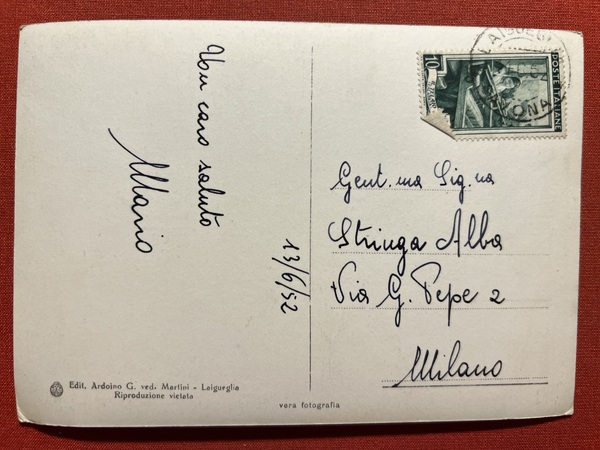 Un caro saluto
Mario
13/6/52
10
POSTE ITALIANE
Gent.ma Sig.na
Stringa Alba
Via G. Pepe 2
Milano
Edit. Ardoino G. ved. Martini - Laigueglia
Riproduzione vietata
vera fotografia